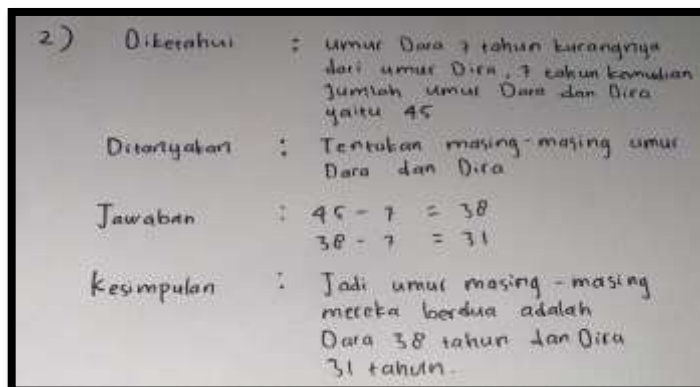 2) Diketahui : umur Dara 7 tahun kurangnya
dari umur Dira, 7 tahun kemudian
Jumlah umur Dara dan Dira
yaitu 45
Ditanyakan : Tentukan masing-masing umur
Dara dan Dira
Jawaban : 45 - 7 = 38
38 - 7 = 31
Kesimpulan : Jadi umur masing-masing
mereka berdua adalah
Dara 38 tahun dan Dira
31 tahun.